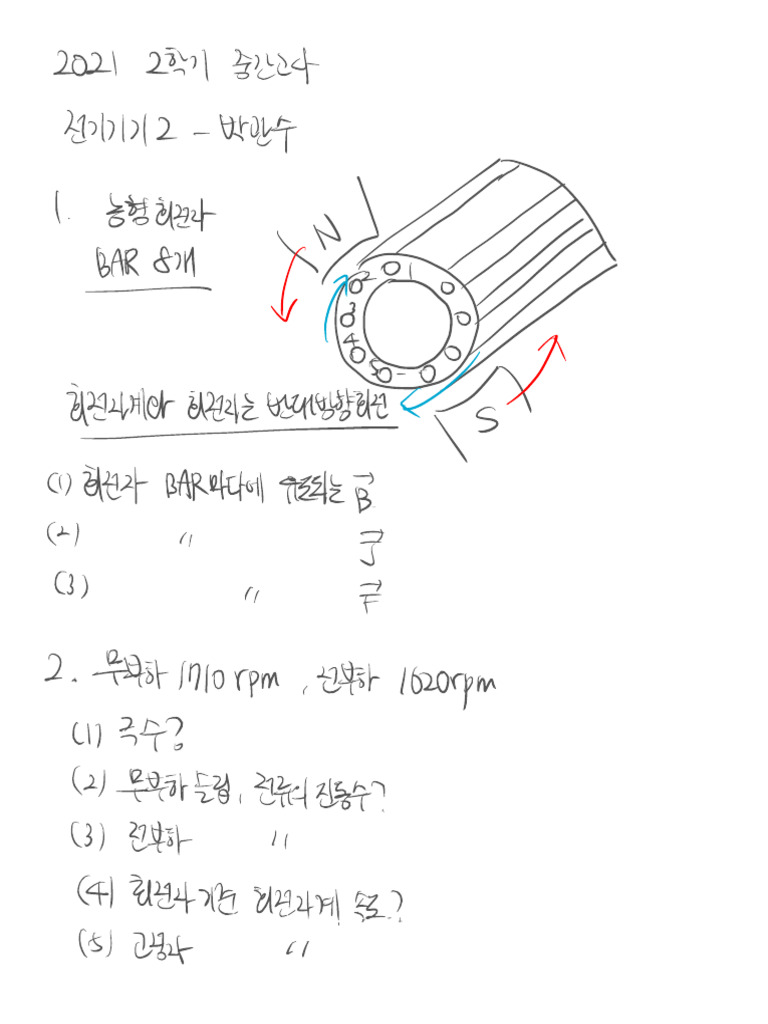 2021 2학기 중간고사
전기기기2 - 박민수
1. 농형회전자
BAR 8개
N
1
2
3
4
5
S
회전자계와 회전자는 반대방향회전
(1) 회전자 BAR마다에 유도되는 B
(2) 〃 J
(3) 〃 F
2. 무부하 1710rpm, 전부하 1620rpm
(1) 극수?
(2) 무부하 슬립, 전류의 진동수?
(3) 전부하 〃
(4) 회전자기준 회전자계 속도?
(5) 고정자 〃